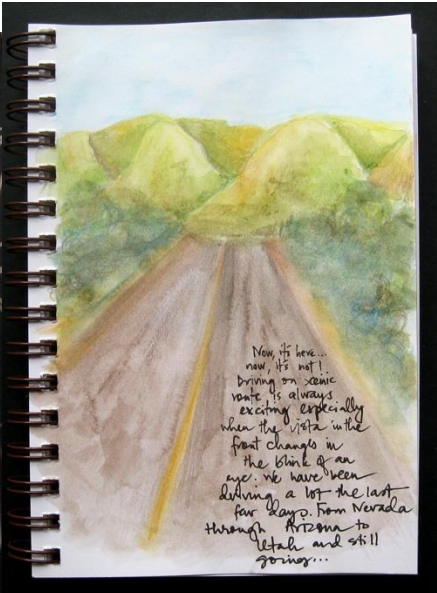 Now, it's here...
now, it's not!
Driving on scenic
route is always
exciting especially
when the vista in the
front changes in
the blink of an
eye. We have been
driving a lot the last
few days. From Nevada
through Arizona to
Utah and still
going...